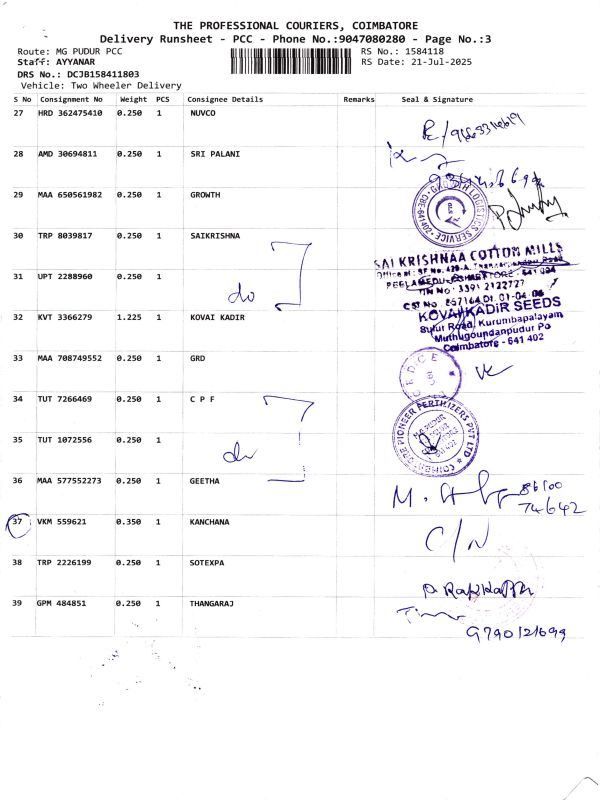 THE PROFESSIONAL COURIERS, COIMBATORE
Delivery Runsheet - PCC - Phone No.:9047080280 - Page No.:3
Route: MG PUDUR PCC
RS No.: 1584118
Staff: AYYANAR
RS Date: 21-Jul-2025
DRS No.: DCJB158411803
Vehicle: Two Wheeler Delivery
S No Consignment No Weight PCS Consignee Details Remarks Seal & Signature
27 HRD 362475410 0.250 1 NUVCO
28 AMD 30694811 0.250 1 SRI PALANI
29 MAA 650561982 0.250 1 GROWTH
GROWTH LOGISTICS SERVICE
30 TRP 8039817 0.250 1 SAIKRISHNA
SAI KRISHNAA COTTON MILLS
31 UPT 2288960 0.250 1 do
PEELAMEDU, COIMBATORE - 641 004
TIN No : 3391 2122727
32 KVT 3366279 1.225 1 KOVAI KADIR
KOVAI KADIR SEEDS
Sulur Road, Kurumbapalayam
Muthugoundanpudur Po
Coimbatore - 641 402
33 MAA 708749552 0.250 1 GRD
34 TUT 7266469 0.250 1 C P F
COIMBATORE PIONEER FERTILIZERS PVT LTD
35 TUT 1072556 0.250 1 do
36 MAA 577552273 0.250 1 GEETHA
86100
74642
37 VKM 559621 0.350 1 KANCHANA C/N
38 TRP 2226199 0.250 1 SOTEXPA
39 GPM 484851 0.250 1 THANGARAJ
9790121699